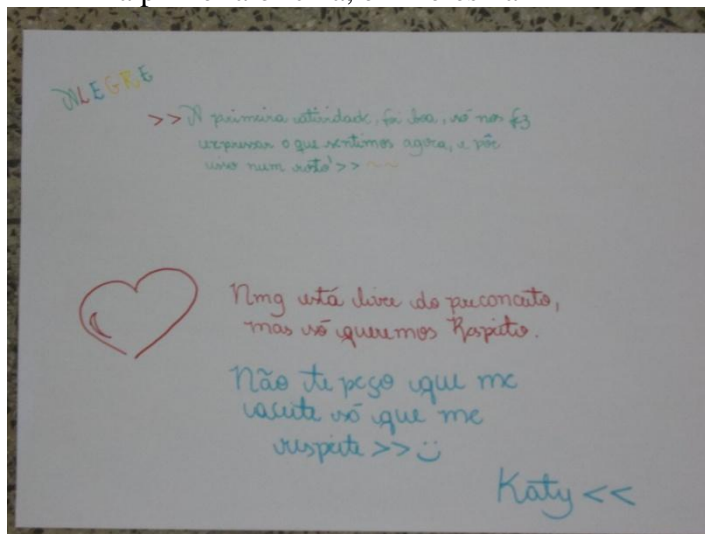 ALEGRE
>> A primeira atividade, foi boa, só nos fez
expressar o que sentimos agora, e pôr
isso num rosto >> ~~
Nmg está livre do preconceito,
mas só queremos Respeito.
Não te peço que me
aceite só que me
respeite >> :)
Katy <<